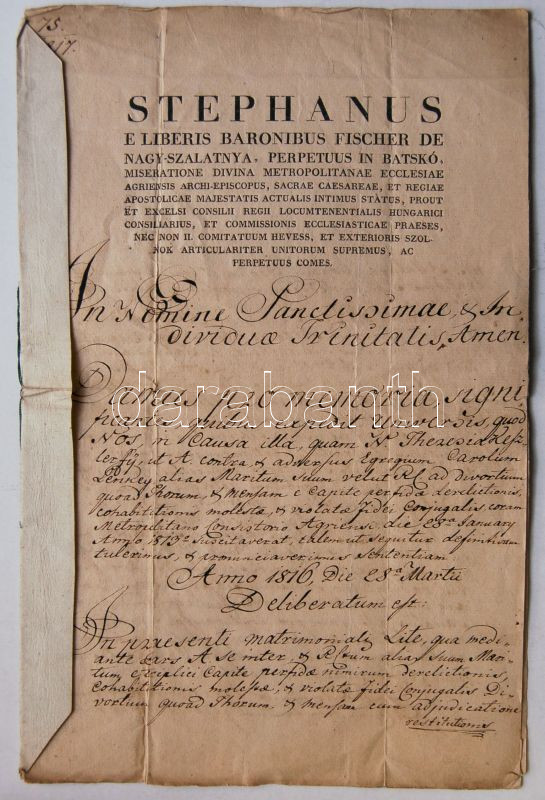 75.
17.
STEPHANUS
E LIBERIS BARONIBUS FISCHER DE
NAGY-SZALATNYA, PERPETUUS IN BATSKÓ,
MISERATIONE DIVINA METROPOLITANAE ECCLESIAE
AGRIENSIS ARCHI-EPISCOPUS, SACRAE CAESAREAE, ET REGIAE
APOSTOLICAE MAJESTATIS ACTUALIS INTIMUS STATUS, PROUT
ET EXCELSI CONSILII REGII LOCUMTENENTIALIS HUNGARICI
CONSILIARIUS, ET COMMISSIONIS ECCLESIASTICAE PRAESES,
NEC NON II. COMITATUUM HEVESS, ET EXTERIORIS SZOL-
NOK ARTICULARITER UNITORUM SUPREMUS, AC
PERPETUUS COMES.
In Nomine Sanctissimae, & In-
dividuae Trinitatis, Amen.
Damus pro memoria, signi
ficantes quibus expedit Universis, quod
Nos, in Causa illa, quam N. Theresia
ut A. contra, & adversus Egregium Carolum
alias Maritum Suum velut R. ad divortium
quoad Thorum, & Mensam e Capite perfidae derelictionis,
cohabitationis molestae, & violatae fidei Conjugalis coram
Metropolitano Consistorio Agriensi, die 28a January
Anno 1813o suscitaverat, talem ut sequitur definitivam
tulerimus, & pronunciaverimus sententiam.
Anno 1816, Die 28a Martii
Deliberatum est:
In praesenti matrimoniali Lite, qua medi-
ante pars A. se inter, & R. alias suum Mari-
tum, ex capite perfidae nimirum derelictionis,
Cohabitationis molestae, & violatae fidei Conjugalis Di-
vortium quoad Thorum, & mensam cum adjudicatione
restitutionis
darabanth